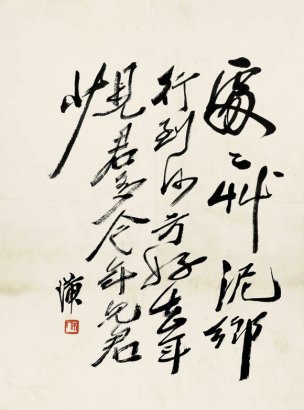 處々艸泥鄉
行到何方好去年
見君多今年見君
少
璜